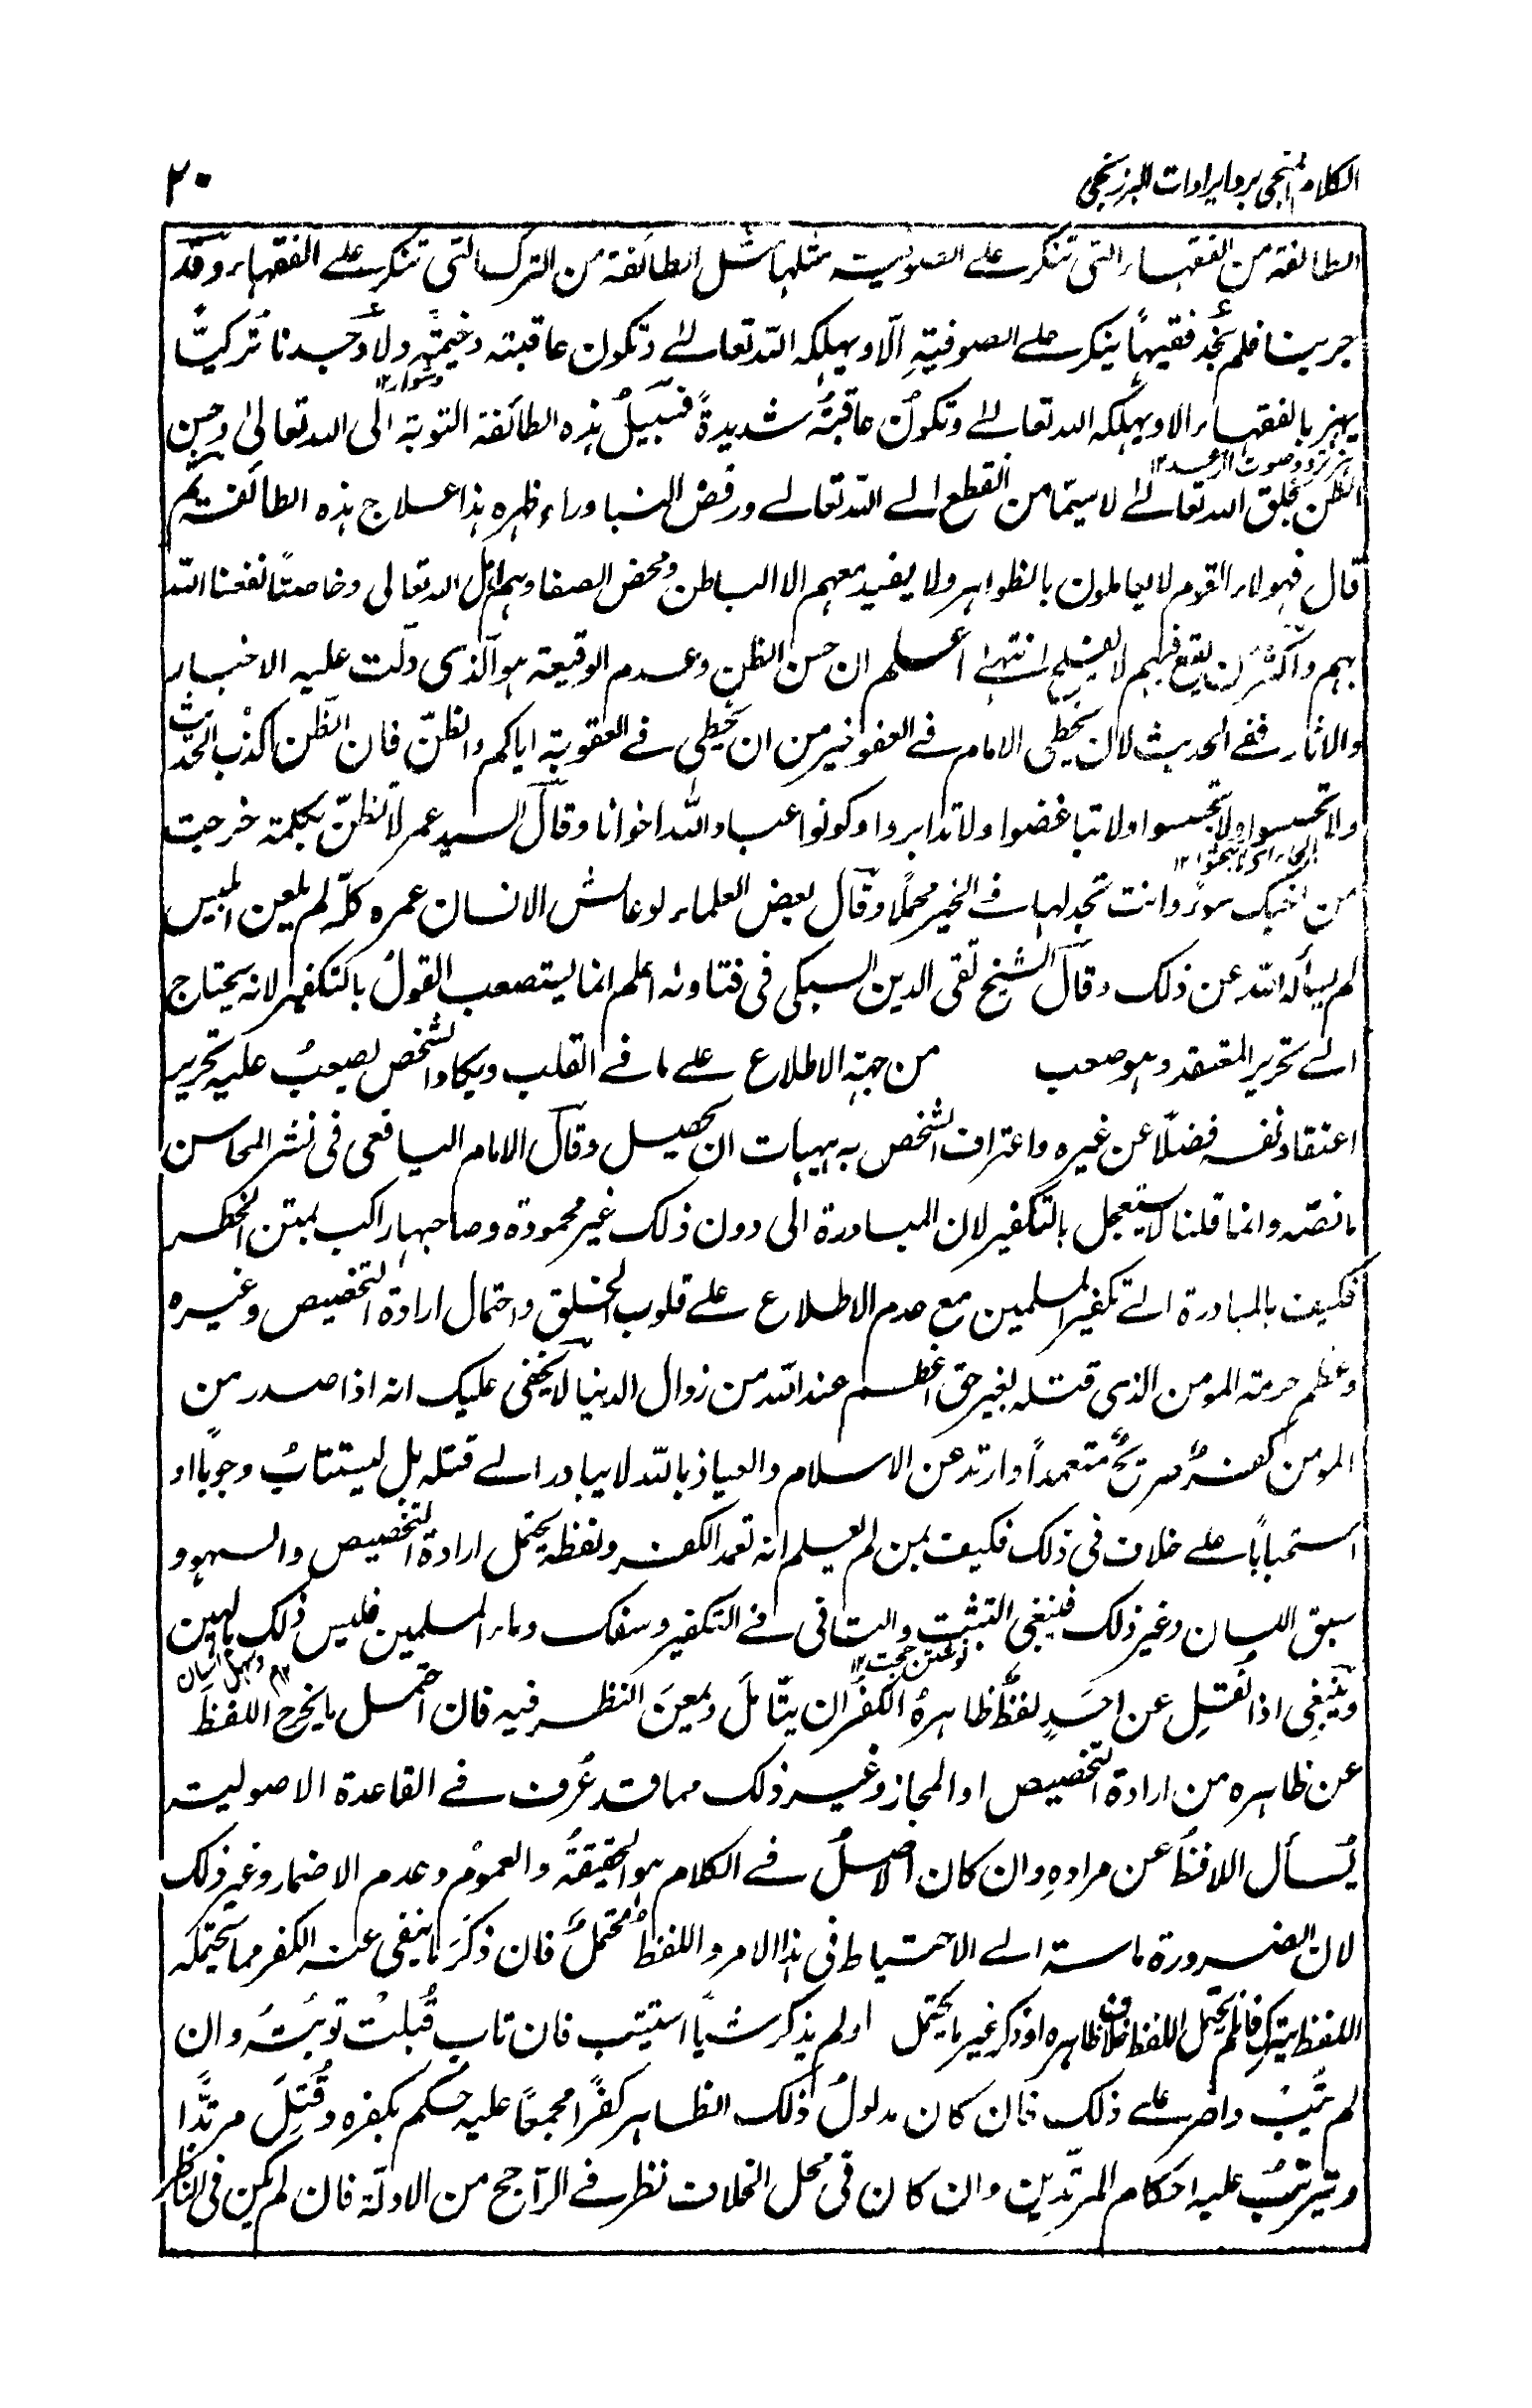 الكلام المنجى برد ايرادات البرزنجى
٢٠
الطائفة من الفقهاء التى تنكر على الصوفية مثلها مثل الطائفة من الترك التى تنكر على الفقهاء وقد
جربنا فلم نجد فقيهًا ينكر على الصوفيةِ الّا ويهلكه الله تعالى وتكون عاقبته وخيمة ولا وجدنا تُركيًّا
دشوار١٢
يهزء بالفقهاء الا ويهلكه الله تعالى وتكونُ عاقبتُه شديدةً فسبيلُ هذه الطائفة التوبة الى الله تعالىٰ وحسن
الظن بخلق الله تعالى لا سيّما من انقطع الى الله تعالى ورفض الدنيا وراء ظهره هذا علاج هذه الطائفة ثم
قال فهولاء القوم لا يعاملون بالظواهر ولا يفيد معهم الا الباطن ومحض الصفا وهم اهل الله تعالى وخاصته نفعنا الله
بهم واكثر من يقع فيهم لا يفلح انتهىٰ اعلم ان حسن الظن وعدم الوقيعة هو الّذى دلّت عليه الاخبار
والاثار ففى الحديث لان يخطى الامام فى العفو خير من ان يخطى فى العقوبة اياكم والظنّ فان الظن اكذب الحديث
ولا تحسسوا ولا تجسسوا ولا تباغضوا ولا تدابروا وكونوا عباد الله اخوانا وقال السيد عمر لا تظنّ بكلمة خرجت
من اخيك سوءً وانت تجد لها فى الخير محملًا وقال بعض العلماء لو عاش الانسان عمره كلّه لم يلعن ابليس
لم يسأله الله عن ذلك وقال الشيخ تقى الدين السبكى فى فتاوئه اعلم انما يستصعب القولُ بالتكفير لانه يحتاج
الى تحرير المعتقد وهو صعب من جهة الاطلاع على ما فى القلب ويكاد الشخص يصعبُ عليه تحرير
اعتقاد نفسه فضلًا عن غيره واعتراف الشخص به هيهات ان يحصل وقال الامام اليافعى فى نشر المحاسن
ما نصّه وانما قلنا لا يستعجل بالتكفير لان المبادرة الى دون ذلك غير محمودة وصاحبها راكب لمتن الخطر
فكيف بالمبادرة الى تكفير المسلمين مع عدم الاطلاع على قلوب الخلق واحتمال ارادة التخصيص وغيره
وعظم حرمة المومن الذى قتله بغير حق اعظم عند الله من زوال الدنيا لا يخفى عليك انه اذا صدر من
المومن كفرٌ صريحٌ متعمداً وارتد عن الاسلام والعياذ بالله لا يبادر الى قتله بل يستتابُ وجوبًا او
استحبابًا على خلاف فى ذلك فكيف بمن لم يعلم انه تعمد الكفر ولفظه يحتمل ارادة التخصيص والسهو و
سبق اللسان وغير ذلك فينبغى التثبت والتانى فى التكفير وسفك دماء المسلمين فليس ذلك بالهين
وينبغِى اذا نُقِل عن احَدٍ لفظٌ ظاهرهُ الكفرُ ان يتّأملَ ويمعنَ النظر فيه فان احتمل ما يخرج اللفظَ
عن ظاهره من ارادة التخصيص او المجاز وغير ذلك مما قد عُرف فى القاعدة الاصولية
يُسأل اللافظُ عن مرادهِ وان كان الاصلُ فى الكلام هو الحقيقةُ والعمومُ وعدم الاضمار وغير ذلك
لان الضرورة ماسة الى الاحتياط فى هذا الامر واللفظُ محتملٌ فان ذكَرَ ما ينفى عنه الكفر مما يحتمله
اللفظ يترك فان لم يحتمل اللفظ خلاف ظاهره او ذكر غير ما يحتمل او لم يذكر شيأ استتيب فان تاب قُبلتْ توبتُه وان
لم يَتُبْ واصر على ذلك فان كان مدلولُ ذلك الظاهر كفرًا مجمعًا عليه حكم بكفره وقُتِلَ مرتدًّا
ويترتبُ عليه احكام المرتدِين وان كان فى محل الخلاف نظر فى الرّاجح من الادلّة فان لم يكن فى الناظر